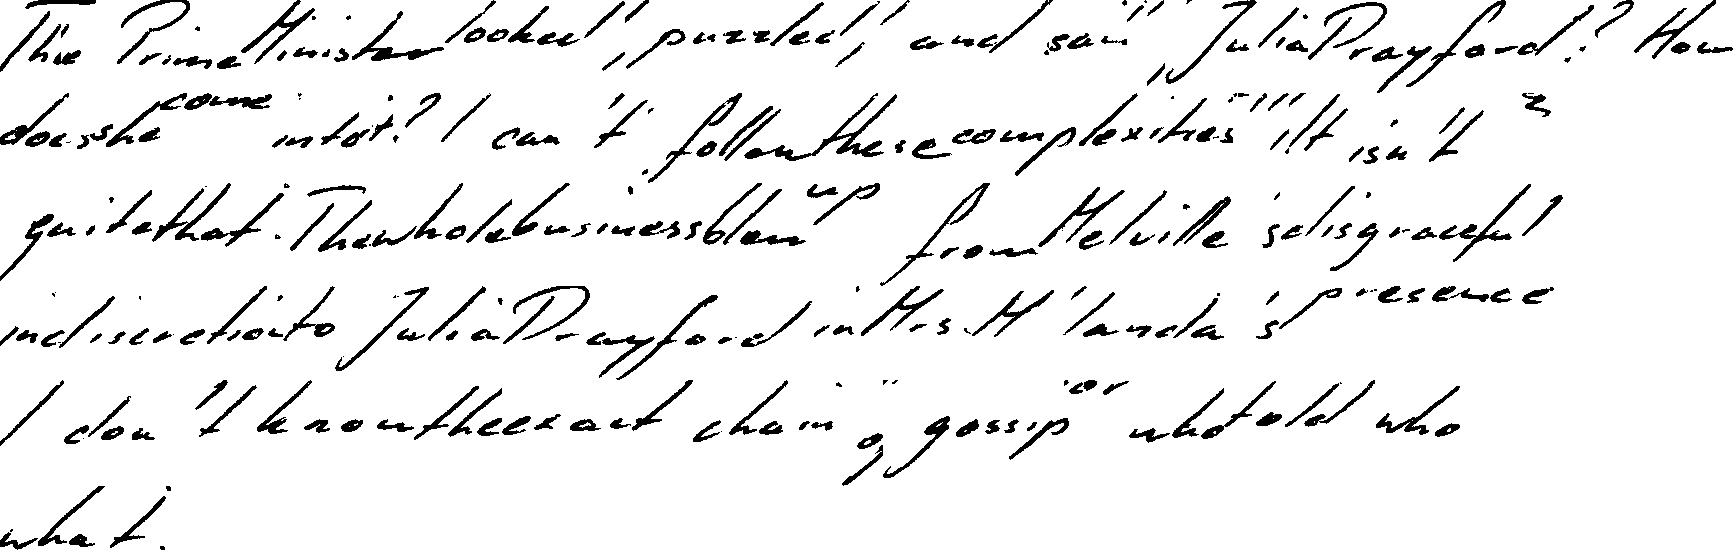 The Prime Minister looked, puzzled, and said "Julia Drayford? How
does she come into it? I can't follow these complexities." "It isn't
quite that. The whole business blew up from Melville's disgraceful
indiscretion to Julia Drayford in Mrs. M'landa's presence
I don't know the exact chain of gossip or who told who
what.